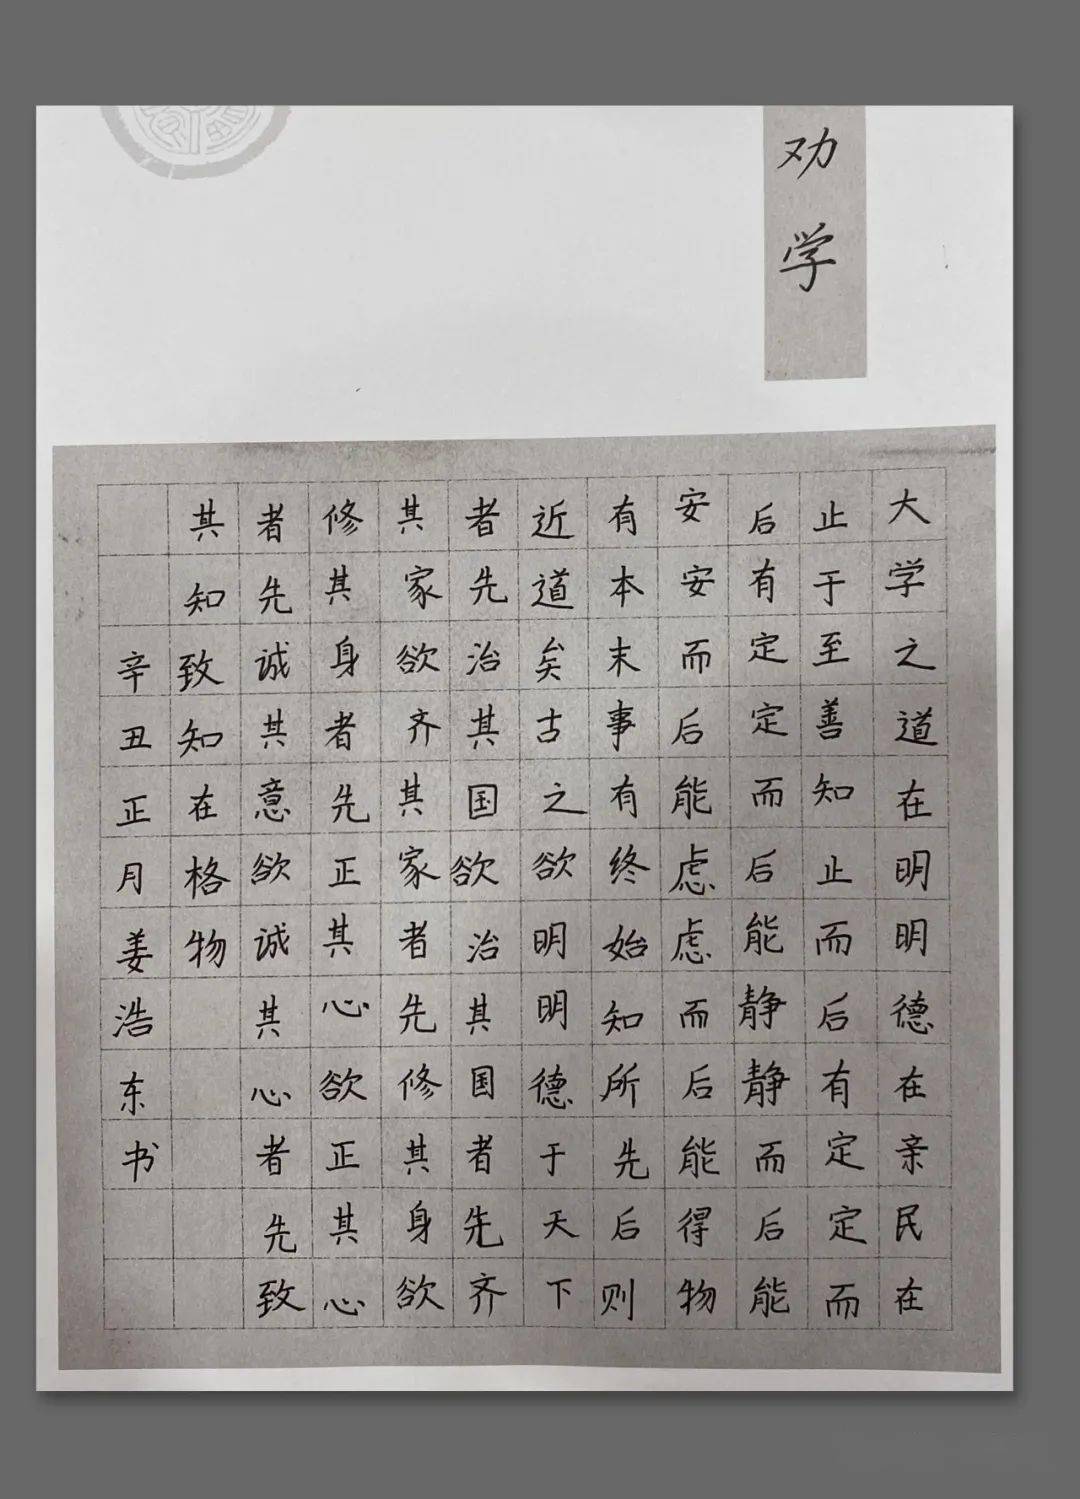 劝学
大学之道在明明德在亲民在
止于至善知止而后有定定而
后有定定而后能静静而后能
安安而后能虑虑而后能得物
有本末事有终始知所先后则
近道矣古之欲明明德于天下
者先治其国欲治其国者先齐
其家欲齐其家者先修其身欲
修其身者先正其心欲正其心
者先诚其意欲诚其心者先致
其知致知在格物
辛丑正月姜浩东书